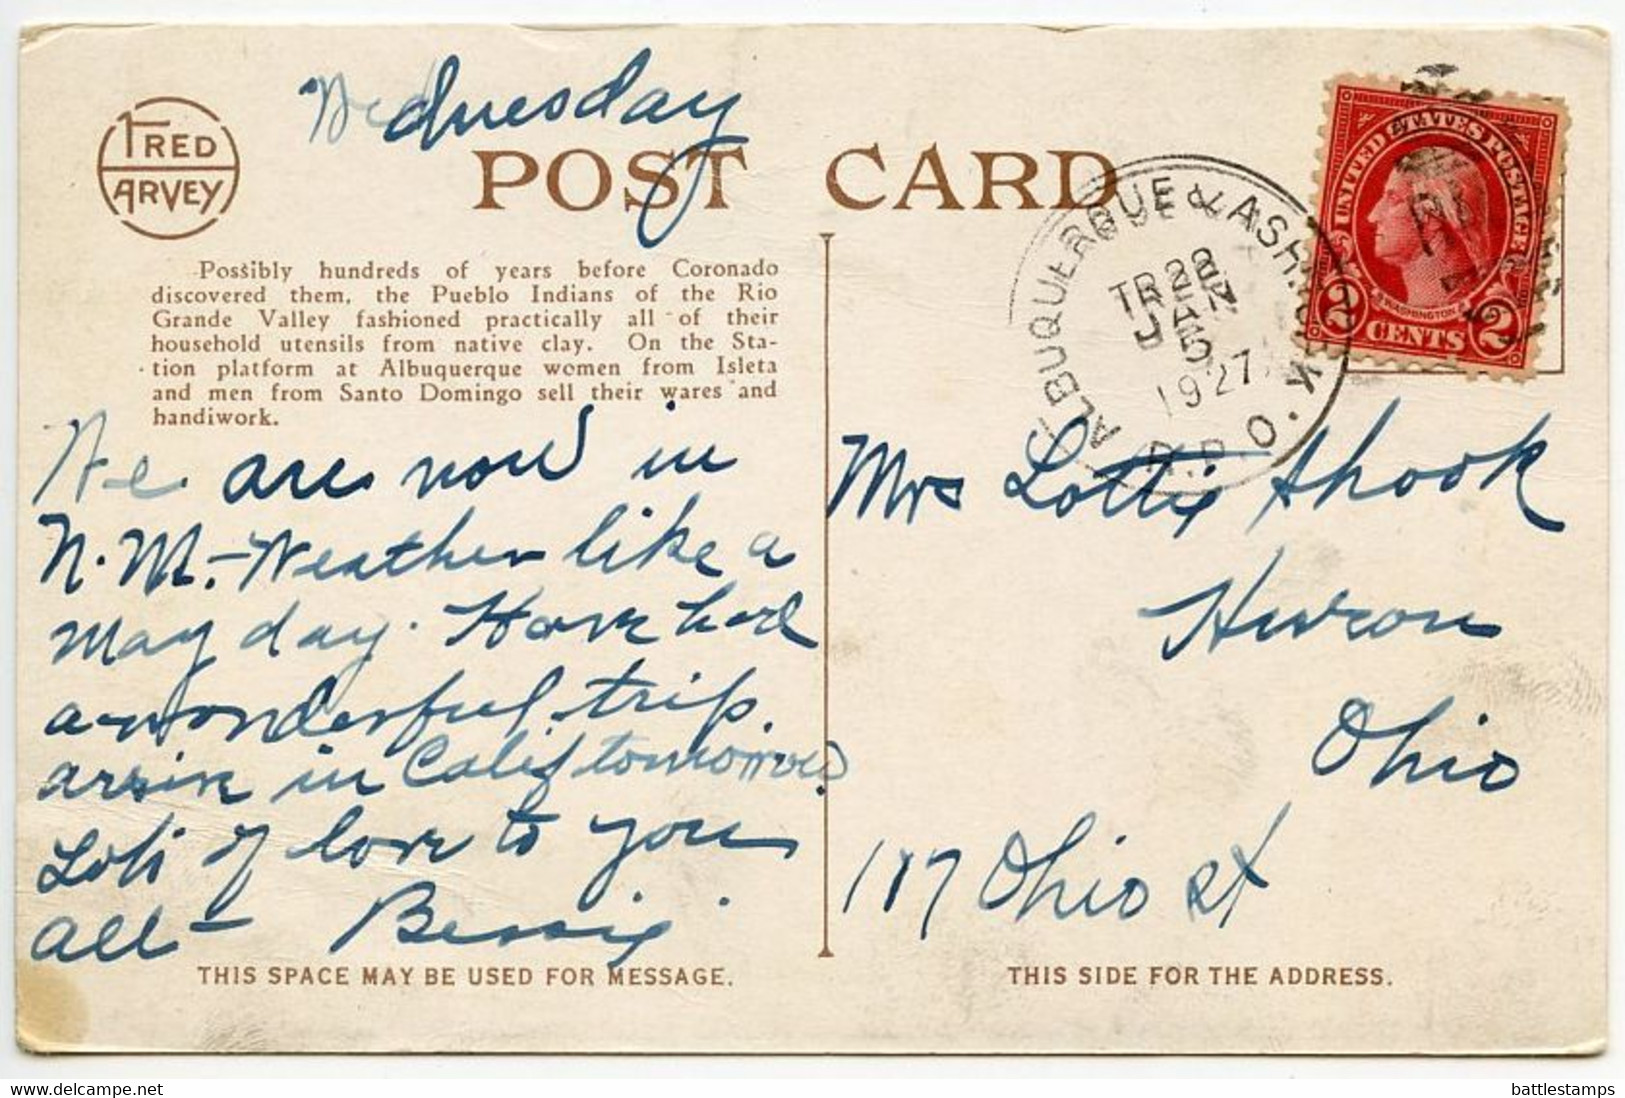 Wednesday
FRED
HARVEY
POST CARD
Possibly hundreds of years before Coronado
discovered them, the Pueblo Indians of the Rio
Grande Valley fashioned practically all of their
household utensils from native clay. On the Sta-
tion platform at Albuquerque women from Isleta
and men from Santo Domingo sell their wares and
handiwork.
We are now in
N.M. - Weather like a
May day. Have had
a wonderful trip.
arrive in Calif tomorrow.
Lots of love to you
all - Bessie
THIS SPACE MAY BE USED FOR MESSAGE.
ALBUQUERQUE & ASH FORK
TR 22
JAN
5
1927
R.P.O.
UNITED STATES POSTAGE
WASHINGTON
2 CENTS 2
Mrs Lottie Shook
Huron
Ohio
117 Ohio st
THIS SIDE FOR THE ADDRESS.
www.delcampe.net
battlestamps